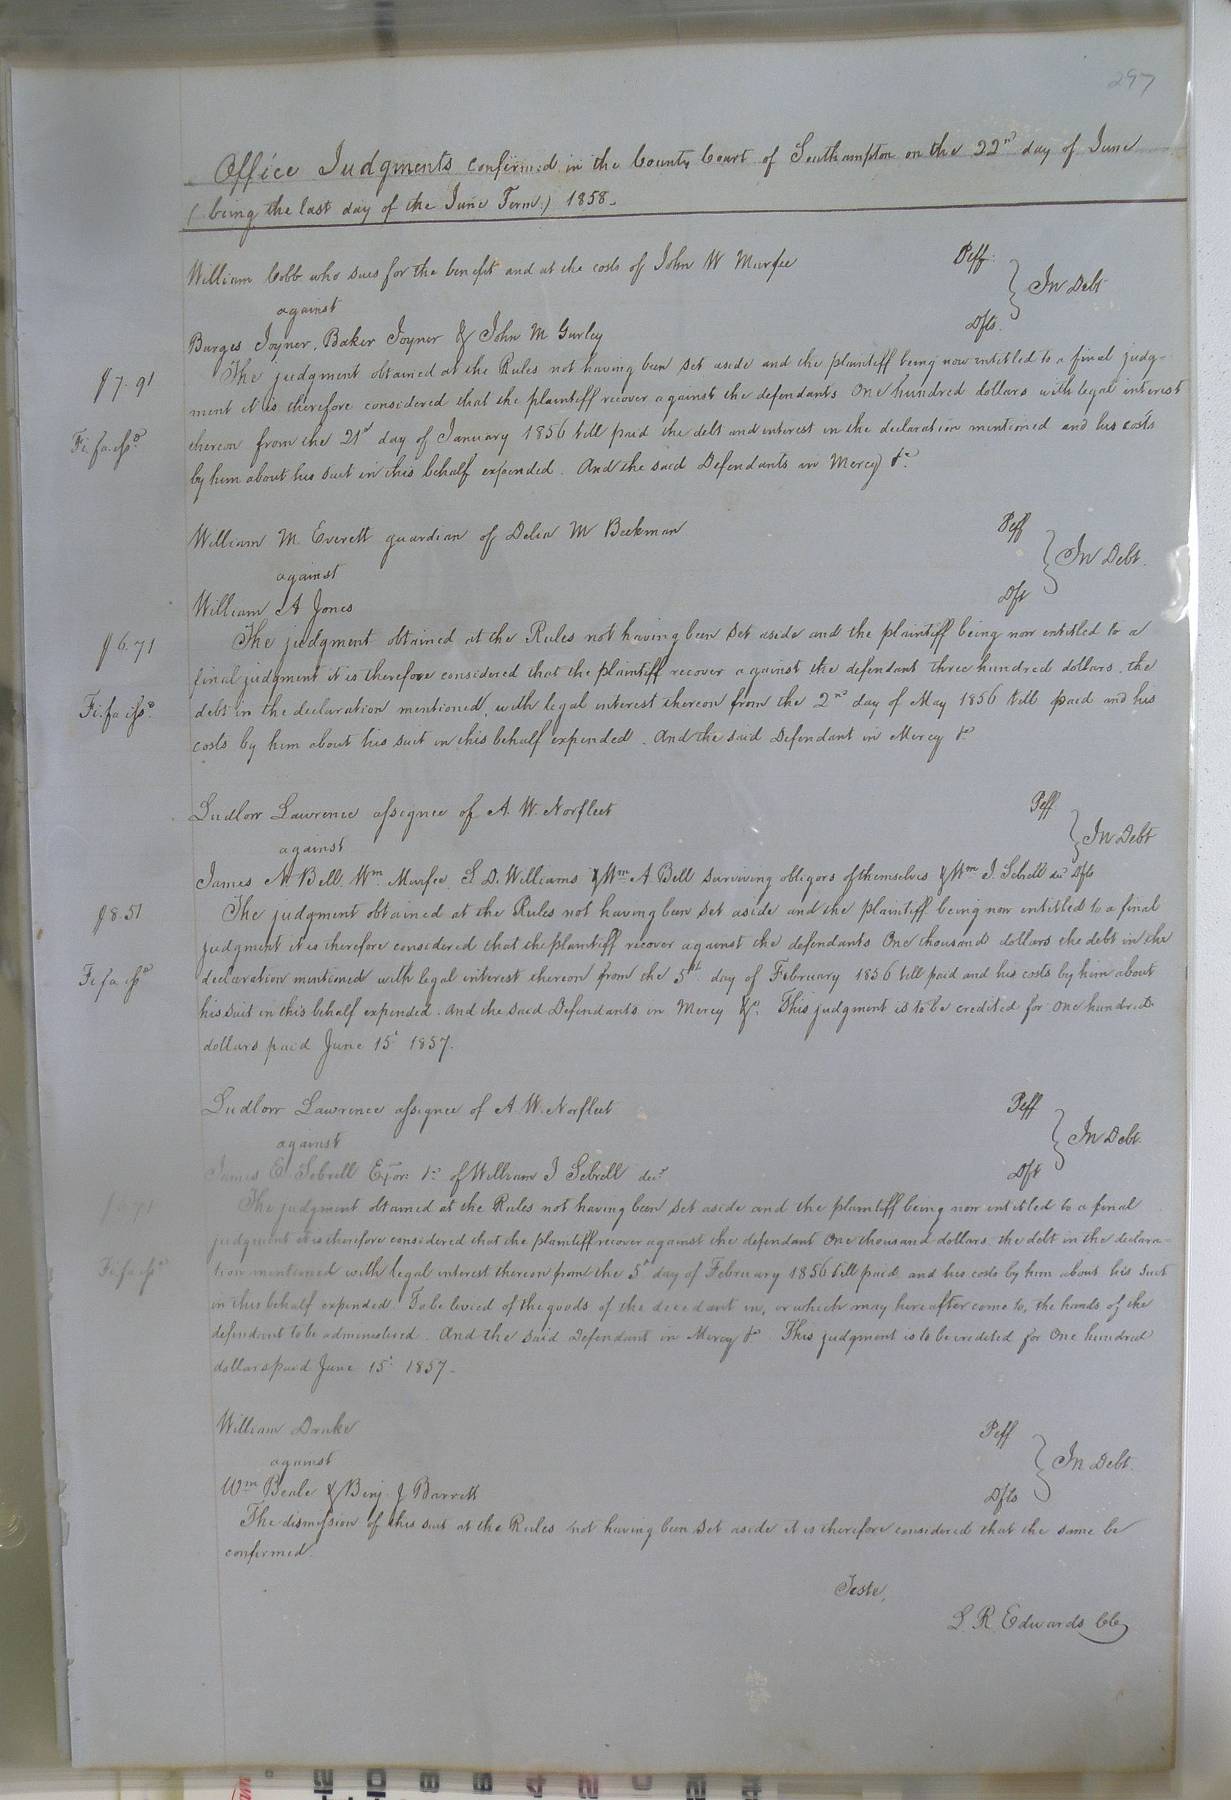 297
Office Judgments confirmed in the County Court of Southampton on the 22nd day of June
(being the last day of the June Term) 1858.
William Cobb who sues for the benefit and at the costs of John W Murfee Plff.
against In Debt
Burges Joyner, Baker Joyner & John M Gurley Dfts.
The judgment obtained at the Rules not having been set aside and the plaintiff being now entitled to a final judg-
$7.91
ment it is therefore considered that the plaintiff recover against the defendants One hundred dollars with legal interest
thereon from the 21st day of January 1856 till paid the debt and interest in the declaration mentioned and his costs
Fi. fa. issd
by him about his suit in this behalf expended. And the said Defendants in Mercy &c.
William M. Everett guardian of Delia M Beekman Plff
against In Debt.
William A Jones Dft
The judgment obtained at the Rules not having been set aside and the plaintiff being now entitled to a
$6.71
final judgment it is therefore considered that the plaintiff recover against the defendant three hundred dollars, the
debt in the declaration mentioned, with legal interest thereon from the 2nd day of May 1856 till paid and his
Fi. fa issd
costs by him about his suit in this behalf expended. And the said Defendant in Mercy &c
Ludlow Lawrence assignee of A. W. Norfleet Plff
against In Debt
James M Bell, Wm Murfee, S. D. Williams & Wm A Bell surviving obligors of themselves & Wm J. Sebrell decd Dfts
The judgment obtained at the Rules not having been set aside and the plaintiff being now entitled to a final
$8.51
judgment it is therefore considered that the plaintiff recover against the defendants One thousand dollars the debt in the
declaration mentioned with legal interest thereon from the 5th day of February 1856 till paid and his costs by him about
Fi fa issd
his suit in this behalf expended. And the said Defendants in Mercy &c. This judgment is to be credited for One hundred
dollars paid June 15t 1857.
Ludlow Lawrence assignee of A. W. Norfleet Plff
against In Debt.
James E. Sebrell Exor: &c of William J Sebrell decd Dft
The judgment obtained at the Rules not having been set aside and the plaintiff being now entitled to a final
$6.71
judgment it is therefore considered that the plaintiff recover against the defendant One thousand dollars, the debt in the declara-
tion mentioned with legal interest thereon from the 5th day of February 1856 till paid and his costs by him about his suit
Fi. fa issd
in this behalf expended. To be levied of the goods of the decedant in, or which may hereafter come to, the hands of the
defendant to be administered. And the said Defendant in Mercy &c This judgment is to be credited for One hundred
dollars paid June 15t 1857.
William Drake Plff
against In Debt.
Wm Beale & Benj. J Barrett Dfts
The dismission of this suit at the Rules not having been set aside it is therefore considered that the same be
confirmed.
Teste,
L. R. Edwards CC